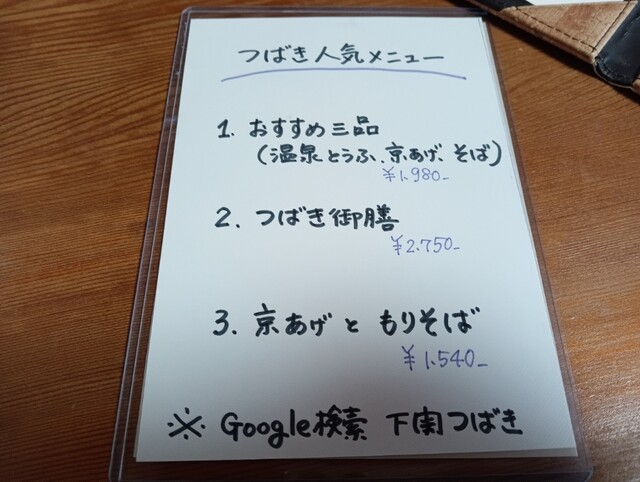 つばき人気メニュー
1. おすすめ三品
(温泉とうふ、京あげ、そば)
¥1.980-
2. つばき御膳
¥2.750-
3. 京あげと もりそば
¥1.540-
※ Google検索 下関つばき